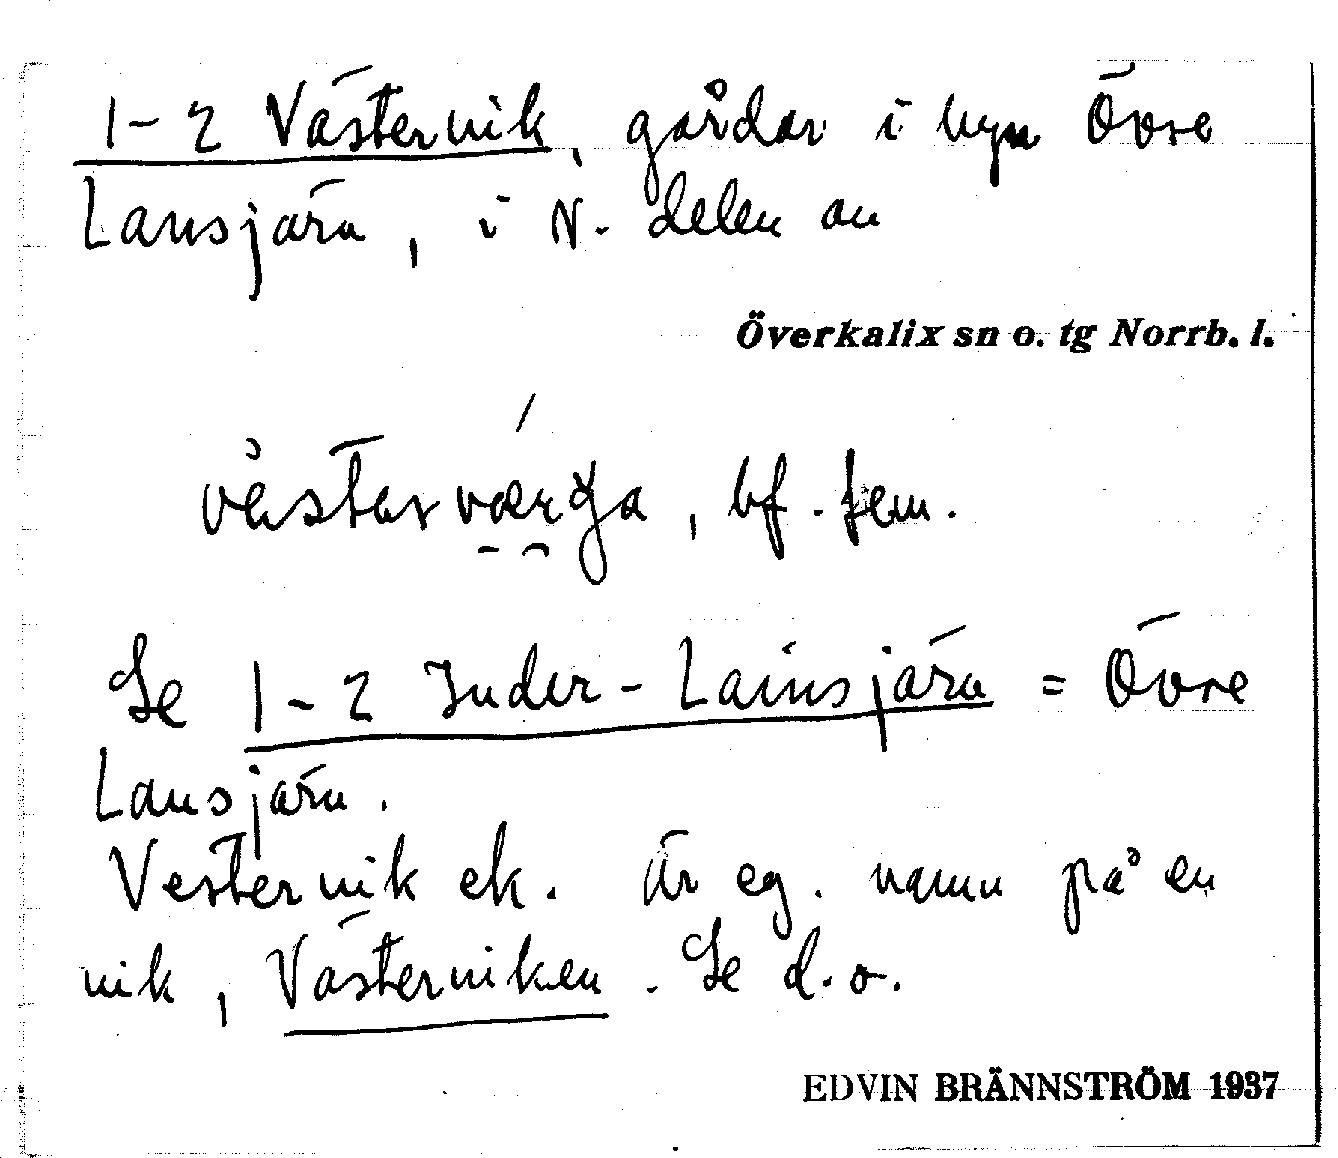 1-2 Västervik, gårdar i byn Övre
Lansjärv, i N. delen av
Överkalix sn o. tg Norrb. l.
bf. fem.
Se 1-2 Inder-Lainsjärv = Övre
Lansjärv.
Vestervik ek. Är eg. namn på en
vik, Västerviken. Se d.o.
EDVIN BRÄNNSTRÖM 1937